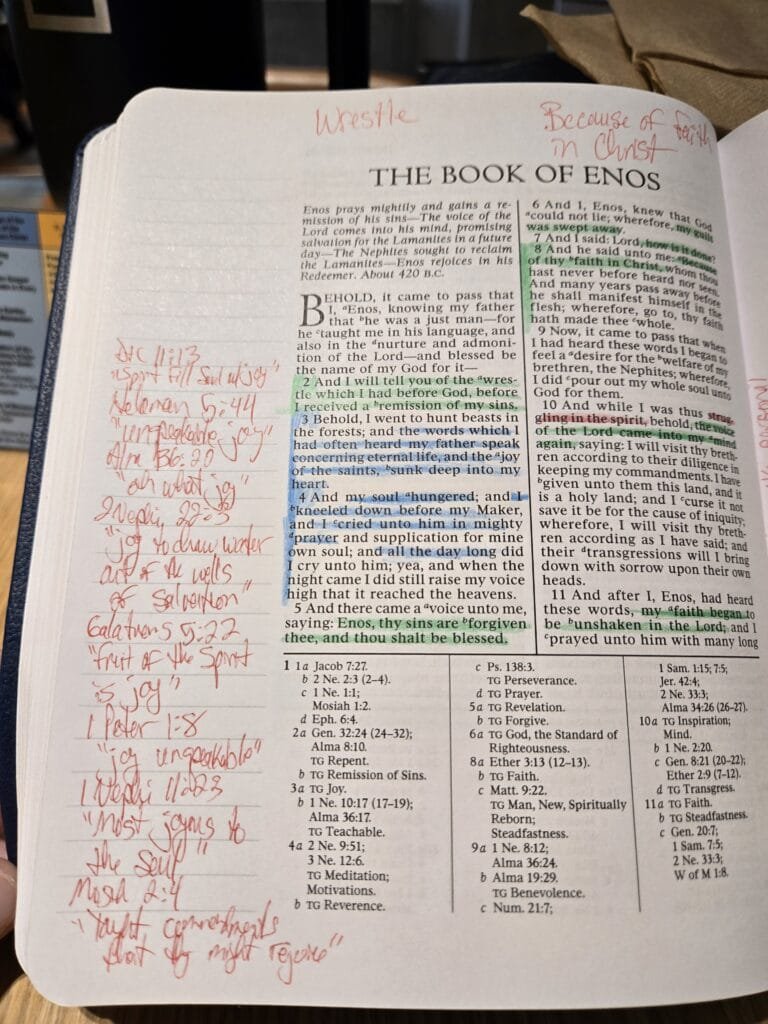 Wrestle
Because of faith
in Christ
THE BOOK OF ENOS
Enos prays mightily and gains a re-
mission of his sins—The voice of the
Lord comes into his mind, promising
salvation for the Lamanites in a future
day—The Nephites sought to reclaim
the Lamanites—Enos rejoices in his
Redeemer. About 420 B.C.
BEHOLD, it came to pass that
I, aEnos, knowing my father
that bhe was a just man—for
he ctaught me in his language, and
also in the dnurture and admoni-
tion of the Lord—and blessed be
the name of my God for it—
2 And I will tell you of the awres-
tle which I had before God, before
I received a bremission of my sins.
3 Behold, I went to hunt beasts in
the forests; and the words which I
had often heard my father speak
concerning eternal life, and the ajoy
of the saints, bsunk deep into my
heart.
4 And my soul ahungered; and I
bkneeled down before my Maker,
and I ccried unto him in mighty
dprayer and supplication for mine
own soul; and all the day long did
I cry unto him; yea, and when the
night came I did still raise my voice
high that it reached the heavens.
5 And there came a avoice unto me,
saying: Enos, thy sins are bforgiven
thee, and thou shalt be blessed.
6 And I, Enos, knew that God
acould not lie; wherefore, my guilt
was swept away.
7 And I said: Lord, how is it done?
8 And he said unto me: aBecause
of thy bfaith in Christ, whom thou
hast never before heard nor seen.
And many years pass away before
he shall manifest himself in the
flesh; wherefore, go to, thy faith
hath made thee cwhole.
9 Now, it came to pass that when
I had heard these words I began to
feel a adesire for the bwelfare of my
brethren, the Nephites; wherefore,
I did cpour out my whole soul unto
God for them.
10 And while I was thus strug-
gling in the spirit, behold, the voice
of the Lord came into my amind
again, saying: I will visit thy breth-
ren according to their diligence in
keeping my commandments. I have
bgiven unto them this land, and it
is a holy land; and I ccurse it not
save it be for the cause of iniquity;
wherefore, I will visit thy breth-
ren according as I have said; and
their dtransgressions will I bring
down with sorrow upon their own
heads.
11 And after I, Enos, had heard
these words, my afaith began to
be bunshaken in the Lord; and I
cprayed unto him with many long
D&C 11:13
"Spirit fill soul w/ joy"
Helaman 5:44
"unspeakable joy"
Alma 36:20
"oh what joy"
2 Nephi 22:3
"joy to draw water
out of the wells
of salvation"
Galatians 5:22
"fruit of the Spirit
is joy"
1 Peter 1:8
"joy unspeakable"
1 Nephi 11:23
"Most joyous to
the Soul"
Mosiah 2:4
"Taught commandments
that they might rejoice"
1 1a Jacob 7:27.
b 2 Ne. 2:3 (2–4).
c 1 Ne. 1:1;
Mosiah 1:2.
d Eph. 6:4.
2a Gen. 32:24 (24–32);
Alma 8:10.
TG Repent.
b TG Remission of Sins.
3a TG Joy.
b 1 Ne. 10:17 (17–19);
Alma 36:17.
TG Teachable.
4a 2 Ne. 9:51;
3 Ne. 12:6.
TG Meditation;
Motivations.
b TG Reverence.
c Ps. 138:3.
TG Perseverance.
d TG Prayer.
5a TG Revelation.
b TG Forgive.
6a TG God, the Standard of
Righteousness.
8a Ether 3:13 (12–13).
b TG Faith.
c Matt. 9:22.
TG Man, New, Spiritually
Reborn;
Steadfastness.
9a 1 Ne. 8:12;
Alma 36:24.
b Alma 19:29.
TG Benevolence.
c Num. 21:7;
1 Sam. 1:15; 7:5;
Jer. 42:4;
2 Ne. 33:3;
Alma 34:26 (26–27).
10a TG Inspiration;
Mind.
b 1 Ne. 2:20.
c Gen. 8:21 (20–22);
Ether 2:9 (7–12).
d TG Transgress.
11a TG Faith.
b TG Steadfastness.
c Gen. 20:7;
1 Sam. 7:5;
2 Ne. 33:3;
W of M 1:8.